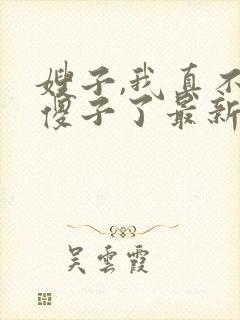 嫂子,我真不
傻子了最新
吴云霞